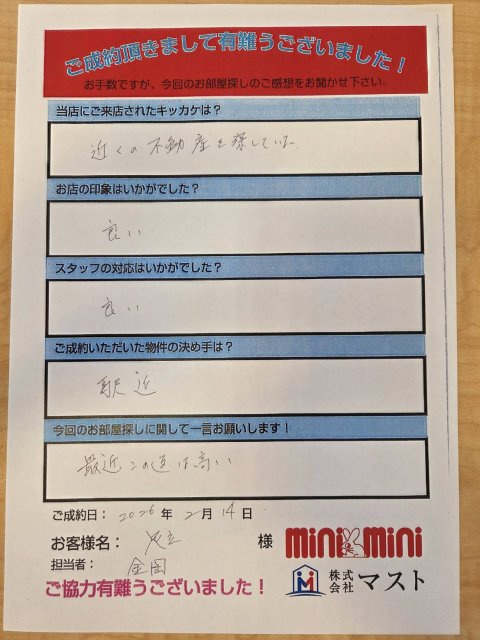 ご成約頂きまして有難うございました！
お手数ですが、今回のお部屋探しのご感想をお聞かせ下さい。
当店にご来店されたキッカケは？
近くの不動産を探している
お店の印象はいかがでした？
良い
スタッフの対応はいかがでした？
良い
ご成約いただいた物件の決め手は？
駅近
今回のお部屋探しに関して一言お願いします！
最近この辺は高い
ご成約日： 2026 年 2 月 14 日
お客様名： 足立 様
担当者： 金岡
mini mini
株式会社 マスト
ご協力有難うございました！